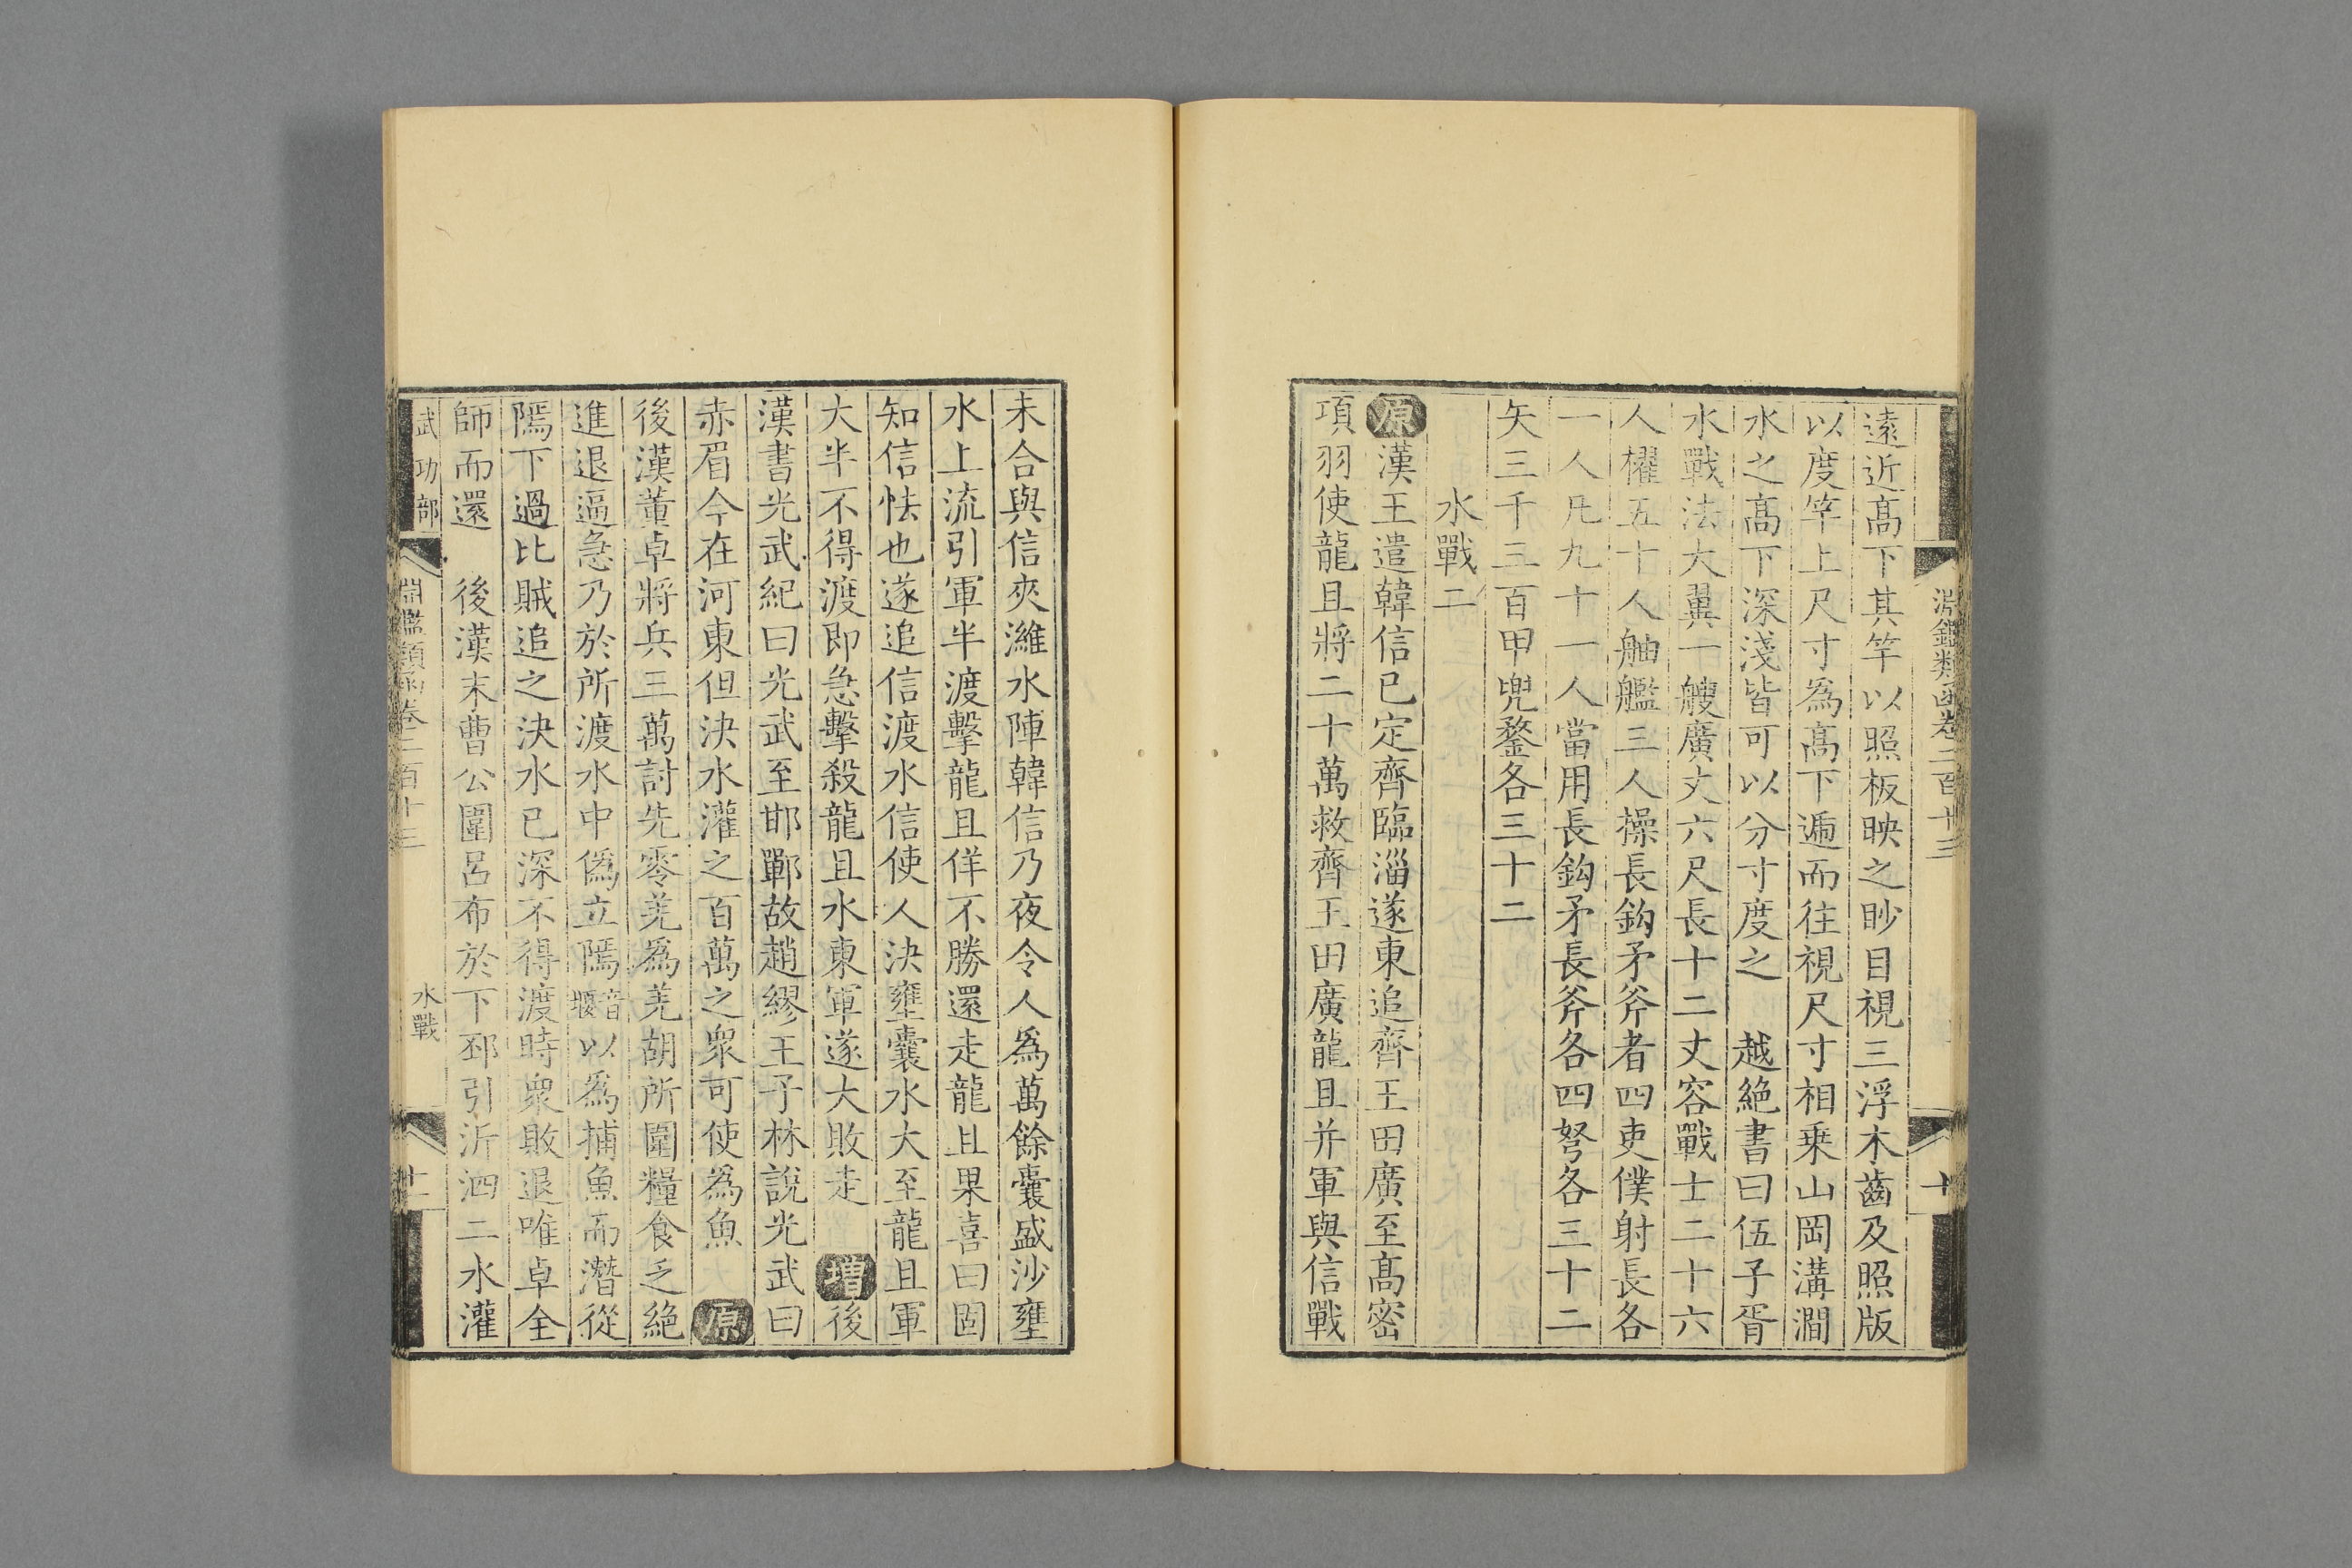 淵鑑類函卷二百十三
十
遠近髙下其竿以照板映之眇目視三浮木齒及照版
以度竿上尺寸爲髙下遞而往視尺寸相乗山岡溝澗
水之髙下深淺皆可以分寸度之　越絶書曰伍子胥
水戰法大翼一艘廣丈六尺長十二丈容戰士二十六
人櫂五十人舳艫三人操長鈎矛斧者四吏僕射長各
一人凡九十一人當用長鈎矛長斧各四弩各三十二
矢三千三百甲兜鍪各三十二
水戰二
原漢王遣韓信已定齊臨淄遂東追齊王田廣至髙密
項羽使龍且將二十萬救齊王田廣龍且并軍與信戰
未合與信夾濰水陣韓信乃夜令人爲萬餘囊盛沙壅
水上流引軍半渡擊龍且佯不勝還走龍且果喜曰固
知信怯也遂追信渡水信使人決壅囊水大至龍且軍
大半不得渡即急擊殺龍且水東軍遂大敗走　增後
漢書光武紀曰光武至邯鄲故趙繆王子林說光武曰
赤眉今在河東但決水灌之百萬之衆可使爲魚　原
後漢董卓將兵三萬討先零羌爲羌胡所圍糧食乏絶
進退逼急乃於所渡水中僞立隝音堰以爲捕魚而潛從
隝下過比賊追之決水已深不得渡時衆敗退唯卓全
師而還　後漢末曹公圍呂布於下邳引沂泗二水灌
武功部
淵鑑類函卷二百十三
水戰
十一